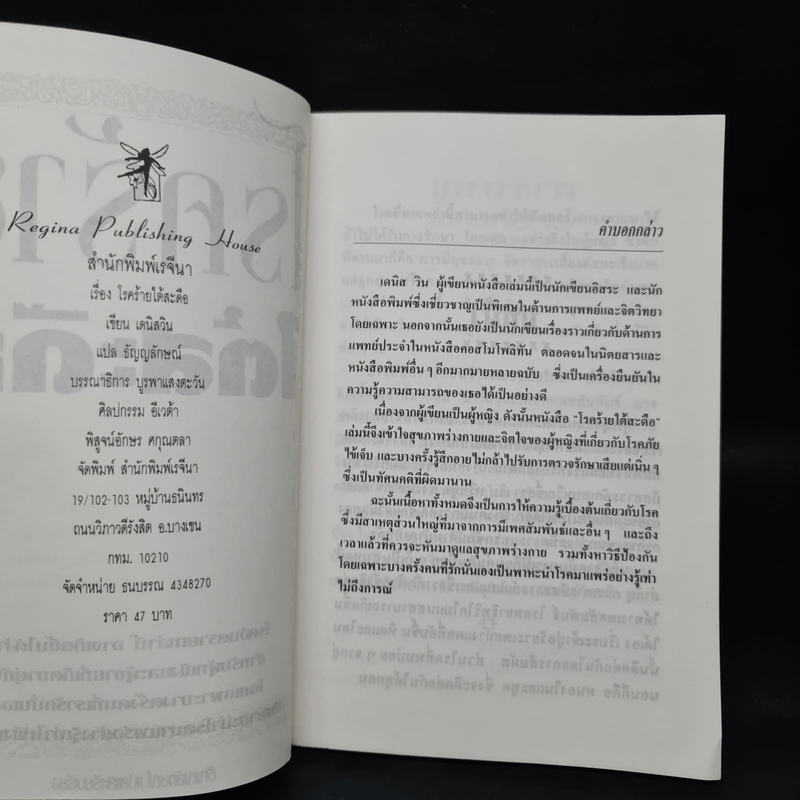 Regina Publishing House
สำนักพิมพ์เรจีนา
เรื่อง โรคร้ายใต้สะดือ
เขียน เดนิสวิน
แปล ธัญญลักษณ์
บรรณาธิการ บูรพาแสงตะวัน
ศิลปกรรม อีเวต้า
พิสูจน์อักษร ศกุณตลา
จัดพิมพ์ สำนักพิมพ์เรจีนา
19/102-103 หมู่บ้านธนินทร
ถนนวิภาวดีรังสิต อ.บางเขน
กทม. 10210
จัดจำหน่าย ธนบรรณ 4348270
ราคา 47 บาท
คำบอกกล่าว
เดนิส วิน ผู้เขียนหนังสือเล่มนี้เป็นนักเขียนอิสระ และนัก
หนังสือพิมพ์ซึ่งเชี่ยวชาญเป็นพิเศษในด้านการแพทย์และจิตวิทยา
โดยเฉพาะ นอกจากนั้นเธอยังเป็นนักเขียนเรื่องราวเกี่ยวกับด้านการ
แพทย์ประจำในหนังสือคอสโมโพลิทัน ตลอดจนในนิตยสารและ
หนังสือพิมพ์อื่น ๆ อีกมากมายหลายฉบับ ซึ่งเป็นเครื่องยืนยันใน
ความรู้ความสามารถของเธอได้เป็นอย่างดี
เนื่องจากผู้เขียนเป็นผู้หญิง ดังนั้นหนังสือ “โรคร้ายใต้สะดือ”
เล่มนี้จึงเข้าใจสุขภาพร่างกายและจิตใจของผู้หญิงที่เกี่ยวกับโรคภัย
ไข้เจ็บ และบางครั้งรู้สึกอายไม่กล้าไปรับการตรวจรักษาเสียแต่เนิ่น ๆ
ซึ่งเป็นทัศนคติที่ผิดมานาน
ฉะนั้นเนื้อหาทั้งหมดจึงเป็นการให้ความรู้เบื้องต้นเกี่ยวกับโรค
ซึ่งมีสาเหตุส่วนใหญ่ที่มาจากการมีเพศสัมพันธ์และอื่น ๆ และถึง
เวลาแล้วที่ควรจะหันมาดูแลสุขภาพร่างกาย รวมทั้งหาวิธีป้องกัน
โดยเฉพาะบางครั้งคนที่รักนั่นเองเป็นพาหะนำโรคมาแพร่อย่างรู้เท่า
ไม่ถึงการณ์